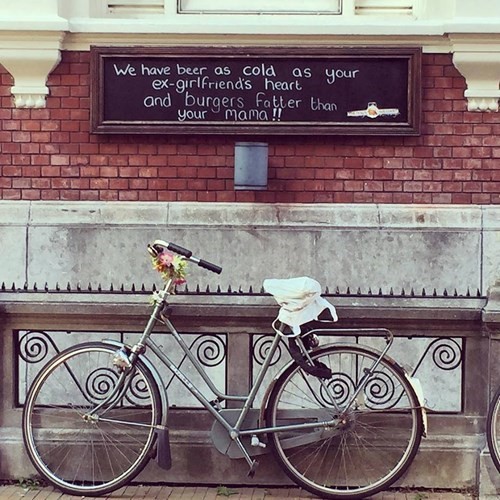 We have beer as cold as your
ex-girlfriend's heart
and burgers fatter than
your mama!!